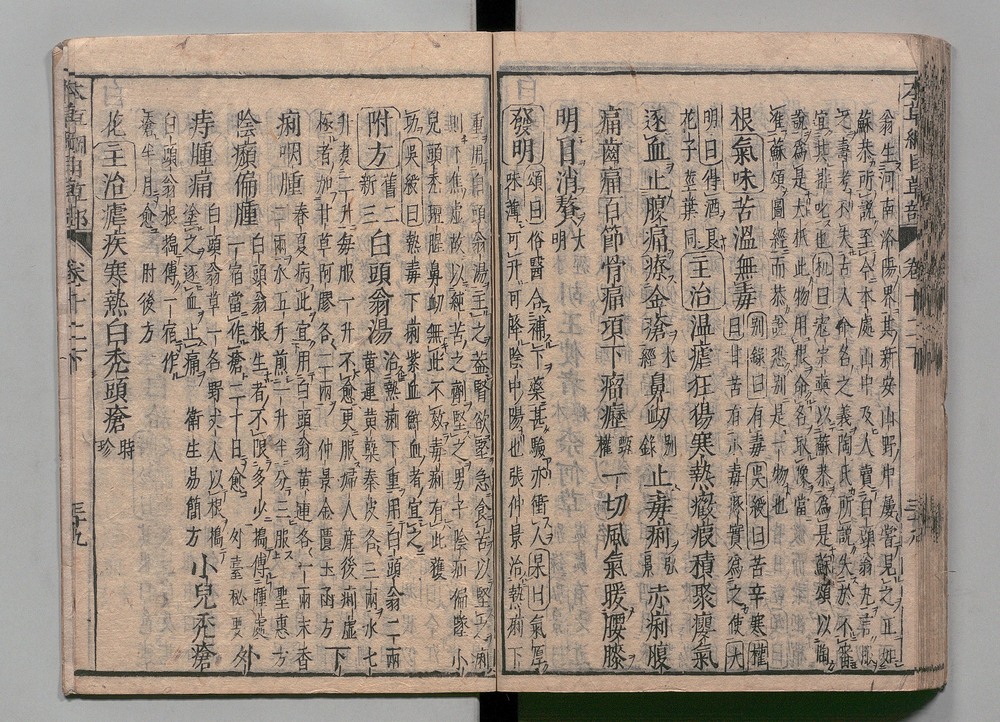 翁生河南洛陽界其新安山野中屢嘗見之正如
蘇恭所説至今本處山中及人賣白頭翁丸言服
之壽考又失古人命名之義陶氏所説失於不審
宜其排叱也機曰寇宗奭以蘇恭為是蘇頌以陶
説為是大抵此物用根命名取象當
准蘇頌圖經而恭説恐別是一物也
根氣味苦溫無毒別錄曰有毒吳綬曰苦辛寒權
曰甘苦有小毒豚實為之使大
明曰得酒良
花子莖葉同主治溫瘧狂狾寒熱癥瘕積聚癭氣
逐血止腹痛療金瘡本經鼻衄別錄止毒痢弘景赤痢腹
痛齒痛百節骨痛項下瘤癧甄權一切風氣暖腰膝
明目消贅大明
發明頌曰俗醫合補下藥甚驗亦衝人杲曰氣厚
味薄可升可降陰中陽也張仲景治熱痢下
重用白頭翁湯主之蓋腎欲堅急食苦以堅之痢
則下焦虛故以純苦之劑堅之男子陰疝偏墜小
兒頭禿羶腥鼻衄無此不效毒痢有此獲
功吳綬曰熱毒下痢紫血鮮血者宜之
附方舊二新三白頭翁湯治熱痢下重用白頭翁二兩
黃連黃蘗秦皮各三兩水七
升煑二升每服一升不愈更服婦人產後痢虛
極者加甘草阿膠各二兩仲景金匱玉函方下
痢咽腫春夏病此宜用白頭翁黃連各一兩木香
二兩水五升煎一升半分三服聖惠方
陰㿗偏腫白頭翁根生者不限多少搗傅腫處
一宿當作瘡二十日愈外臺秘要外
痔腫痛白頭翁草一名野丈人以根搗
塗之逐血止痛衛生易簡方小兒禿瘡
白頭翁根搗傅一宿作
瘡半月愈肘後方
花主治瘧疾寒熱白禿頭瘡時珍
卷十二下
三十九